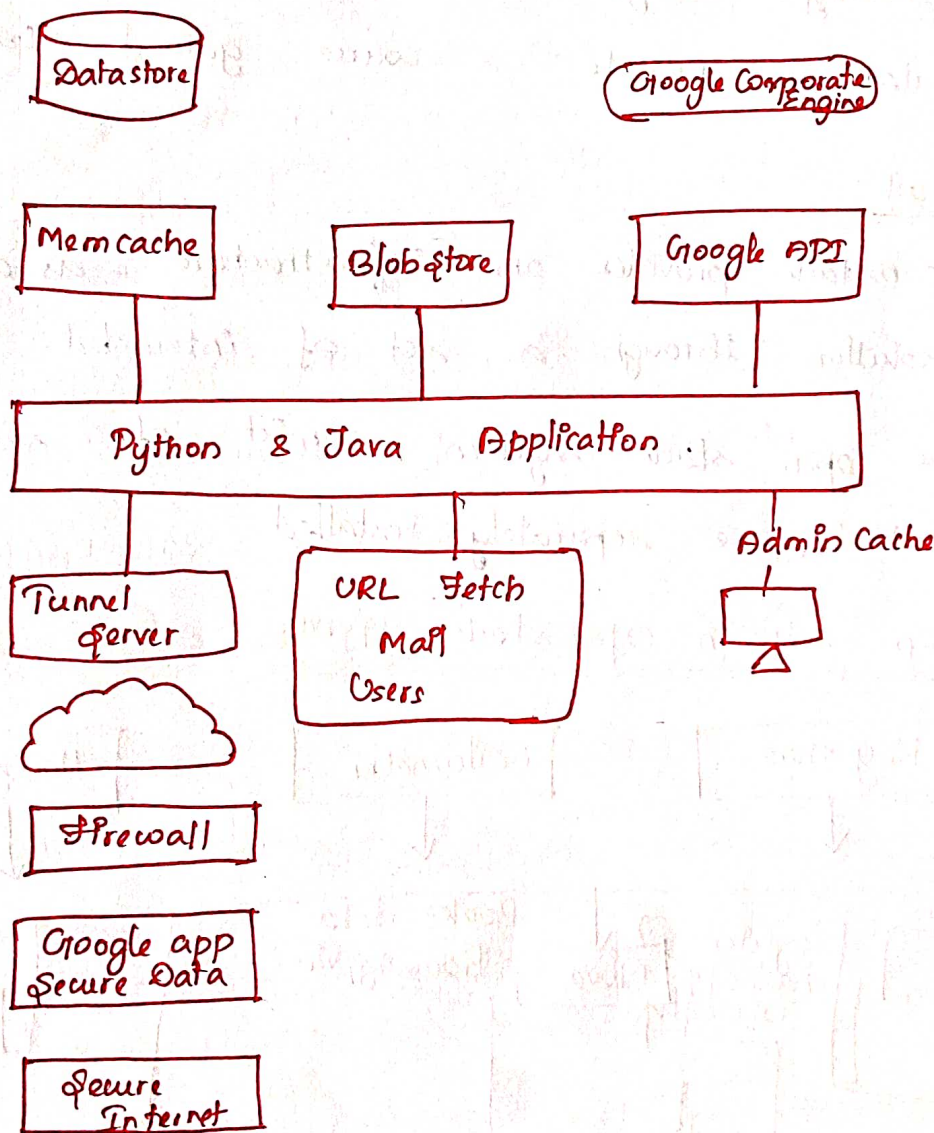 Datastore
Google Corporate
Engine
Memcache
Blobstore
Google API
Python & Java Application.
Admin Cache
Tunnel
Server
URL Fetch
Mail
Users
Firewall
Google app
Secure Data
Secure
Internet